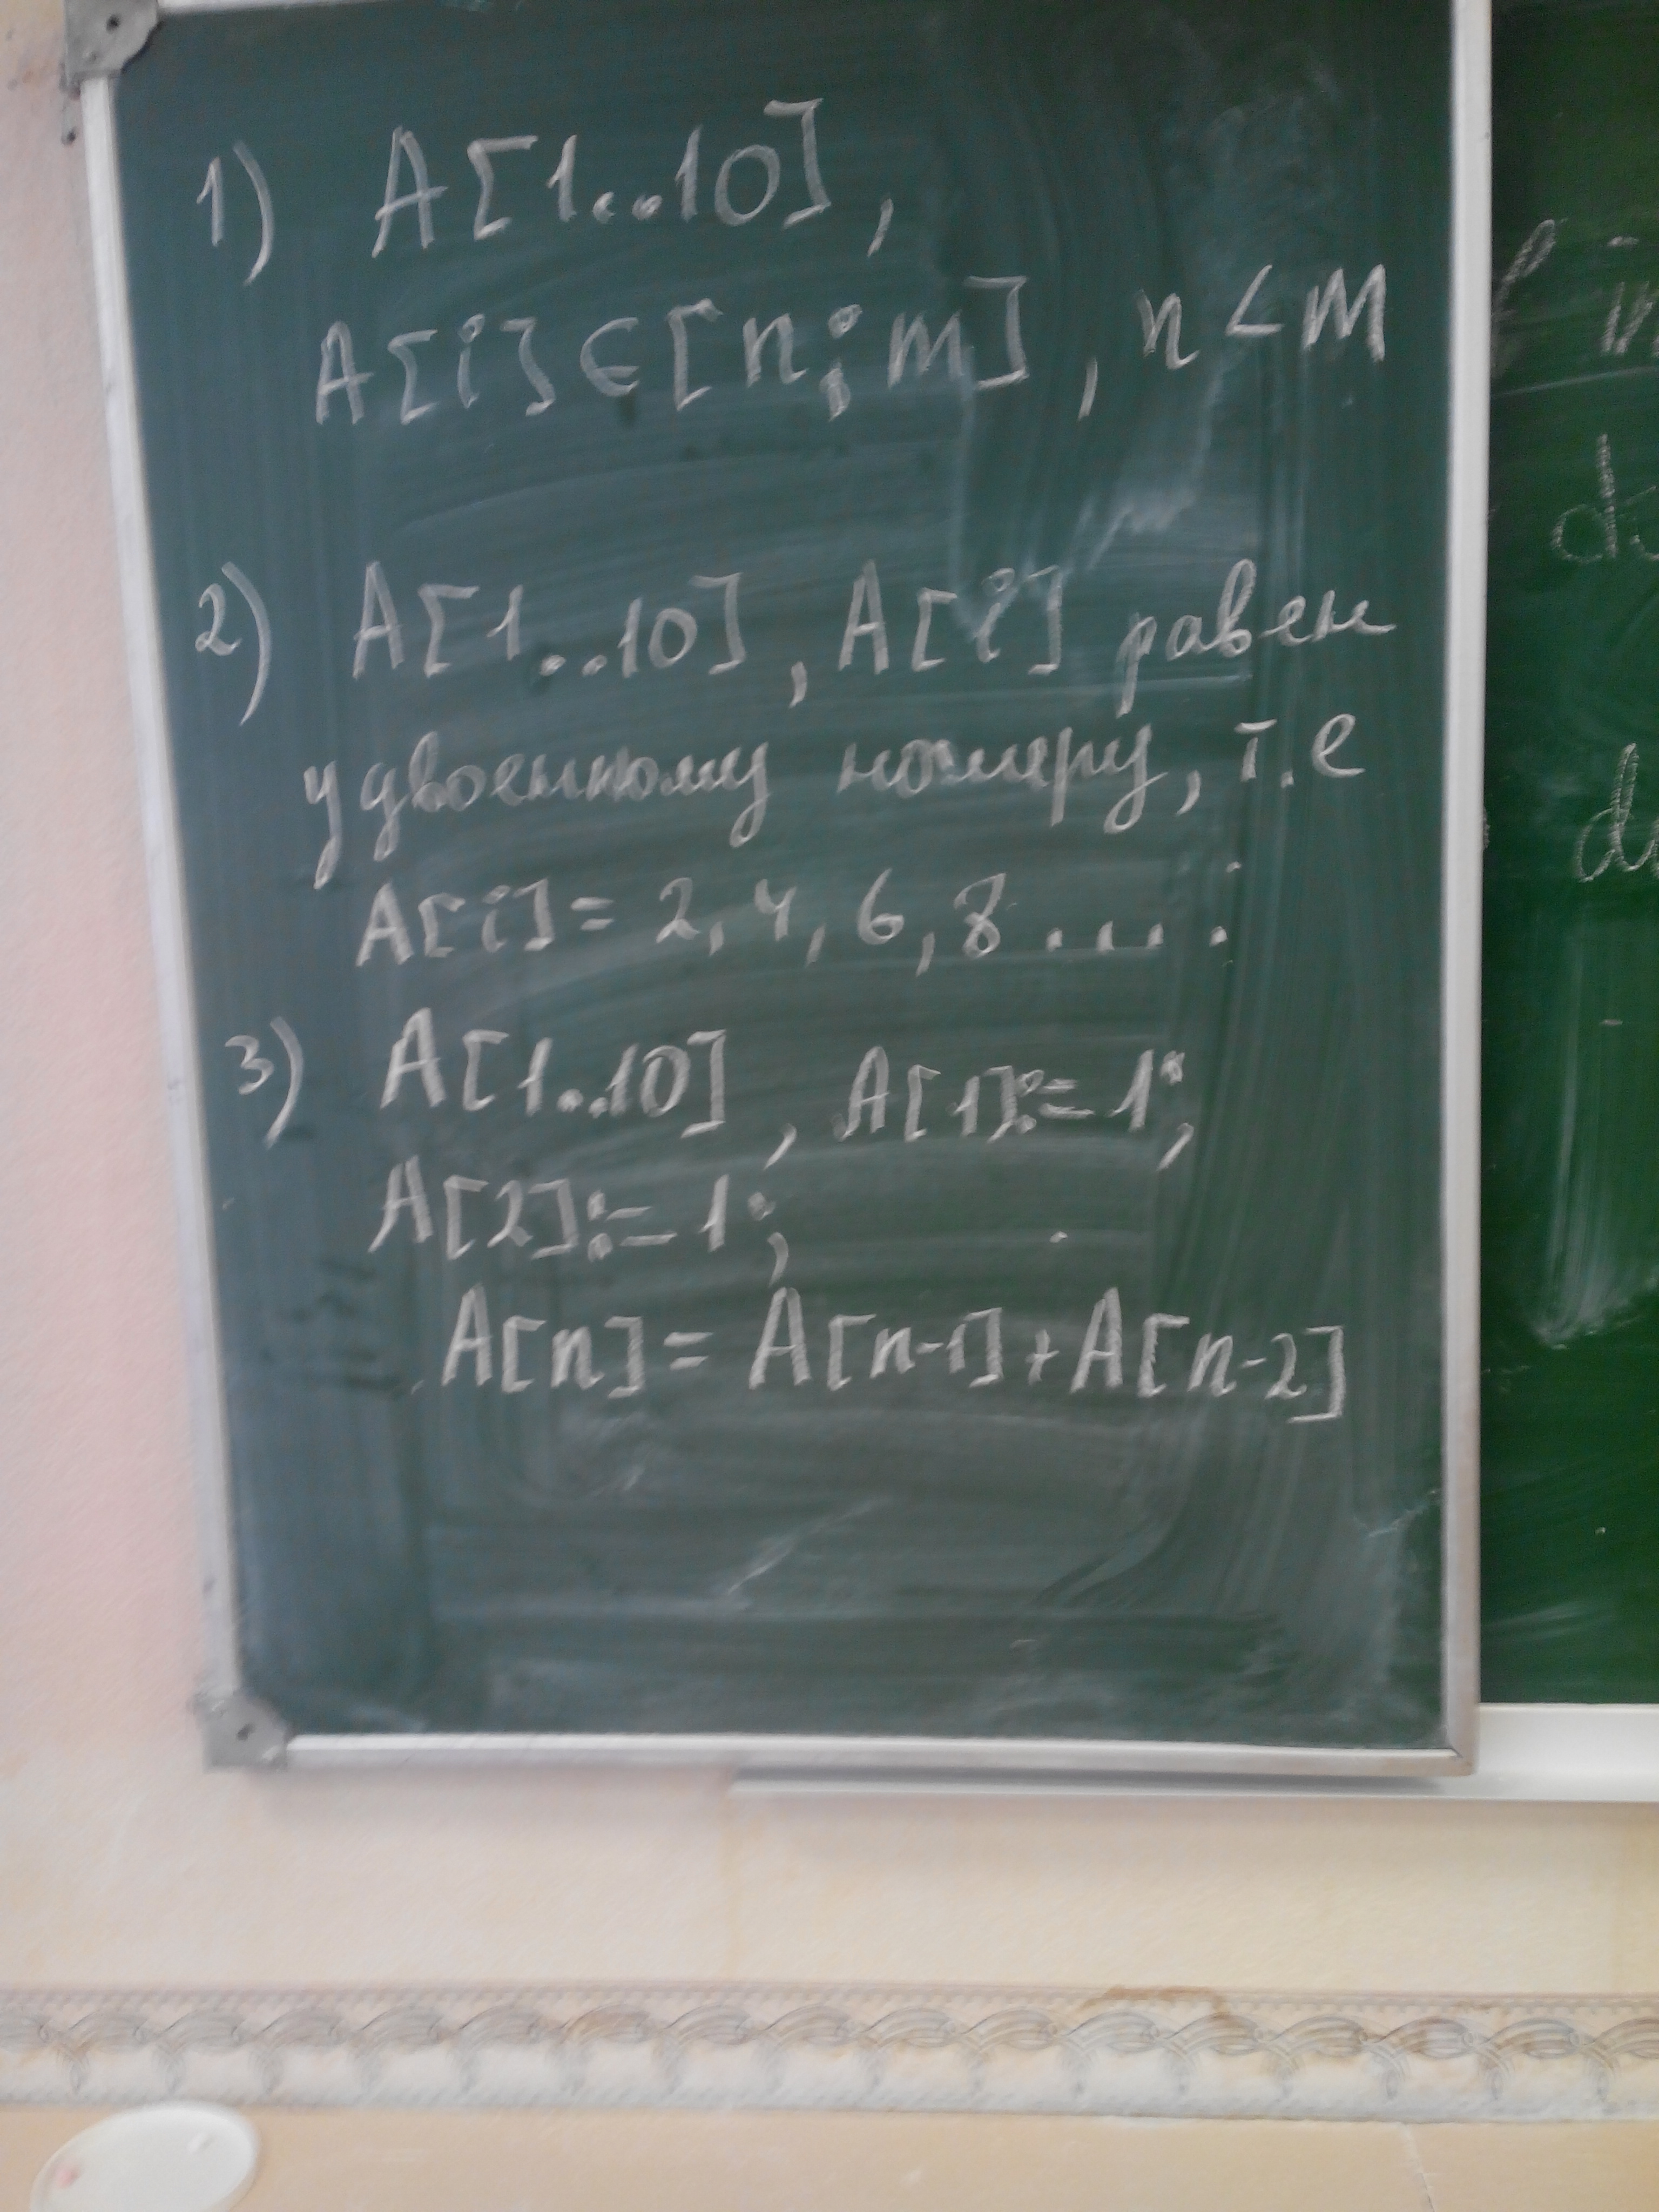 1) A[1..10],
A[i]∈[n;m], n<m
2) A[1..10], A[i] равен
удвоенному номеру, т.е
A[i]=2,4,6,8....;
3) A[1..10], A[1]:=1;
A[2]:=1;
A[n]=A[n-1]+A[n-2]